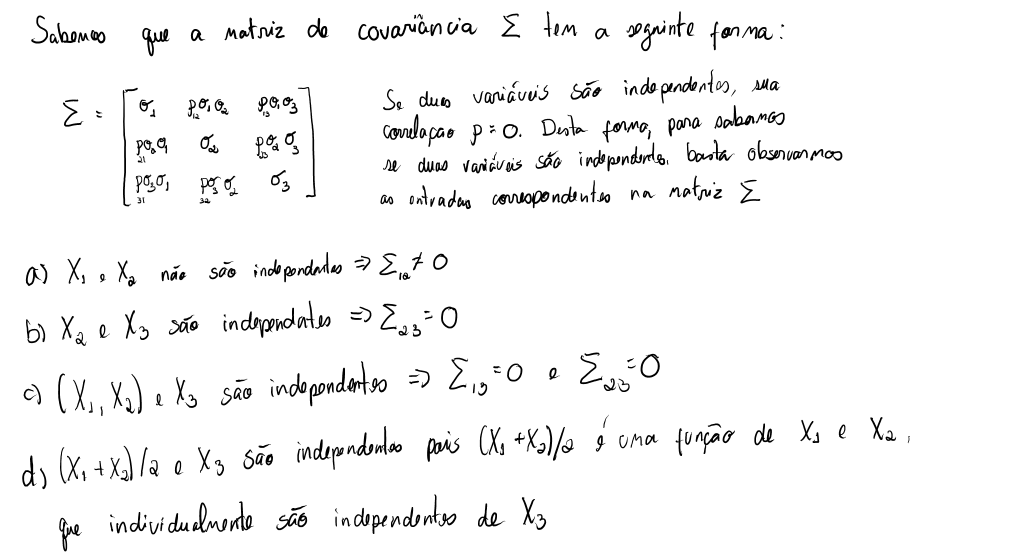 Sabemos que a matriz de covariância Σ tem a seguinte forma:
Σ = [ σ₁ ρ₁₂σ₁σ₂ ρ₁₃σ₁σ₃
ρ₂₁σ₂σ₁ σ₂ ρ₂₃σ₂σ₃
ρ₃₁σ₃σ₁ ρ₃₂σ₃σ₂ σ₃ ]
Se duas variáveis são independentes, sua
correlaçao ρ = 0. Desta forma, para sabermos
se duas variáveis são independentes, basta observarmos
as entradas correspondentes na matriz Σ
a) X₁ e X₂ não são independentes ⇒ Σ₁₂ ≠ 0
b) X₂ e X₃ são independentes ⇒ Σ₂₃ = 0
c) (X₁, X₂) e X₃ são independentes ⇒ Σ₁₃ = 0 e Σ₂₃ = 0
d) (X₁ + X₂)/2 e X₃ são independentes pois (X₁ + X₂)/2 é uma função de X₁ e X₂,
que individualmente são independentes de X₃